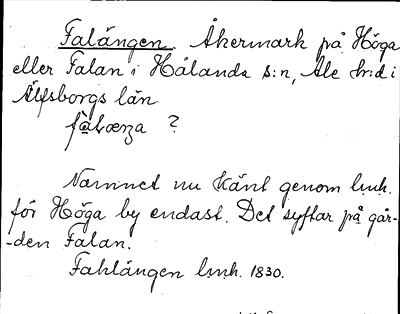 Falängen. Åkermark på Höga
eller Falan i Hålanda s:n, Ale hr:d i
Älfsborgs län
?
Namnet nu känt genom lmh.
för Höga by endast. Det syftar på går-
-den Falan.
Fahlängen lmh. 1830.